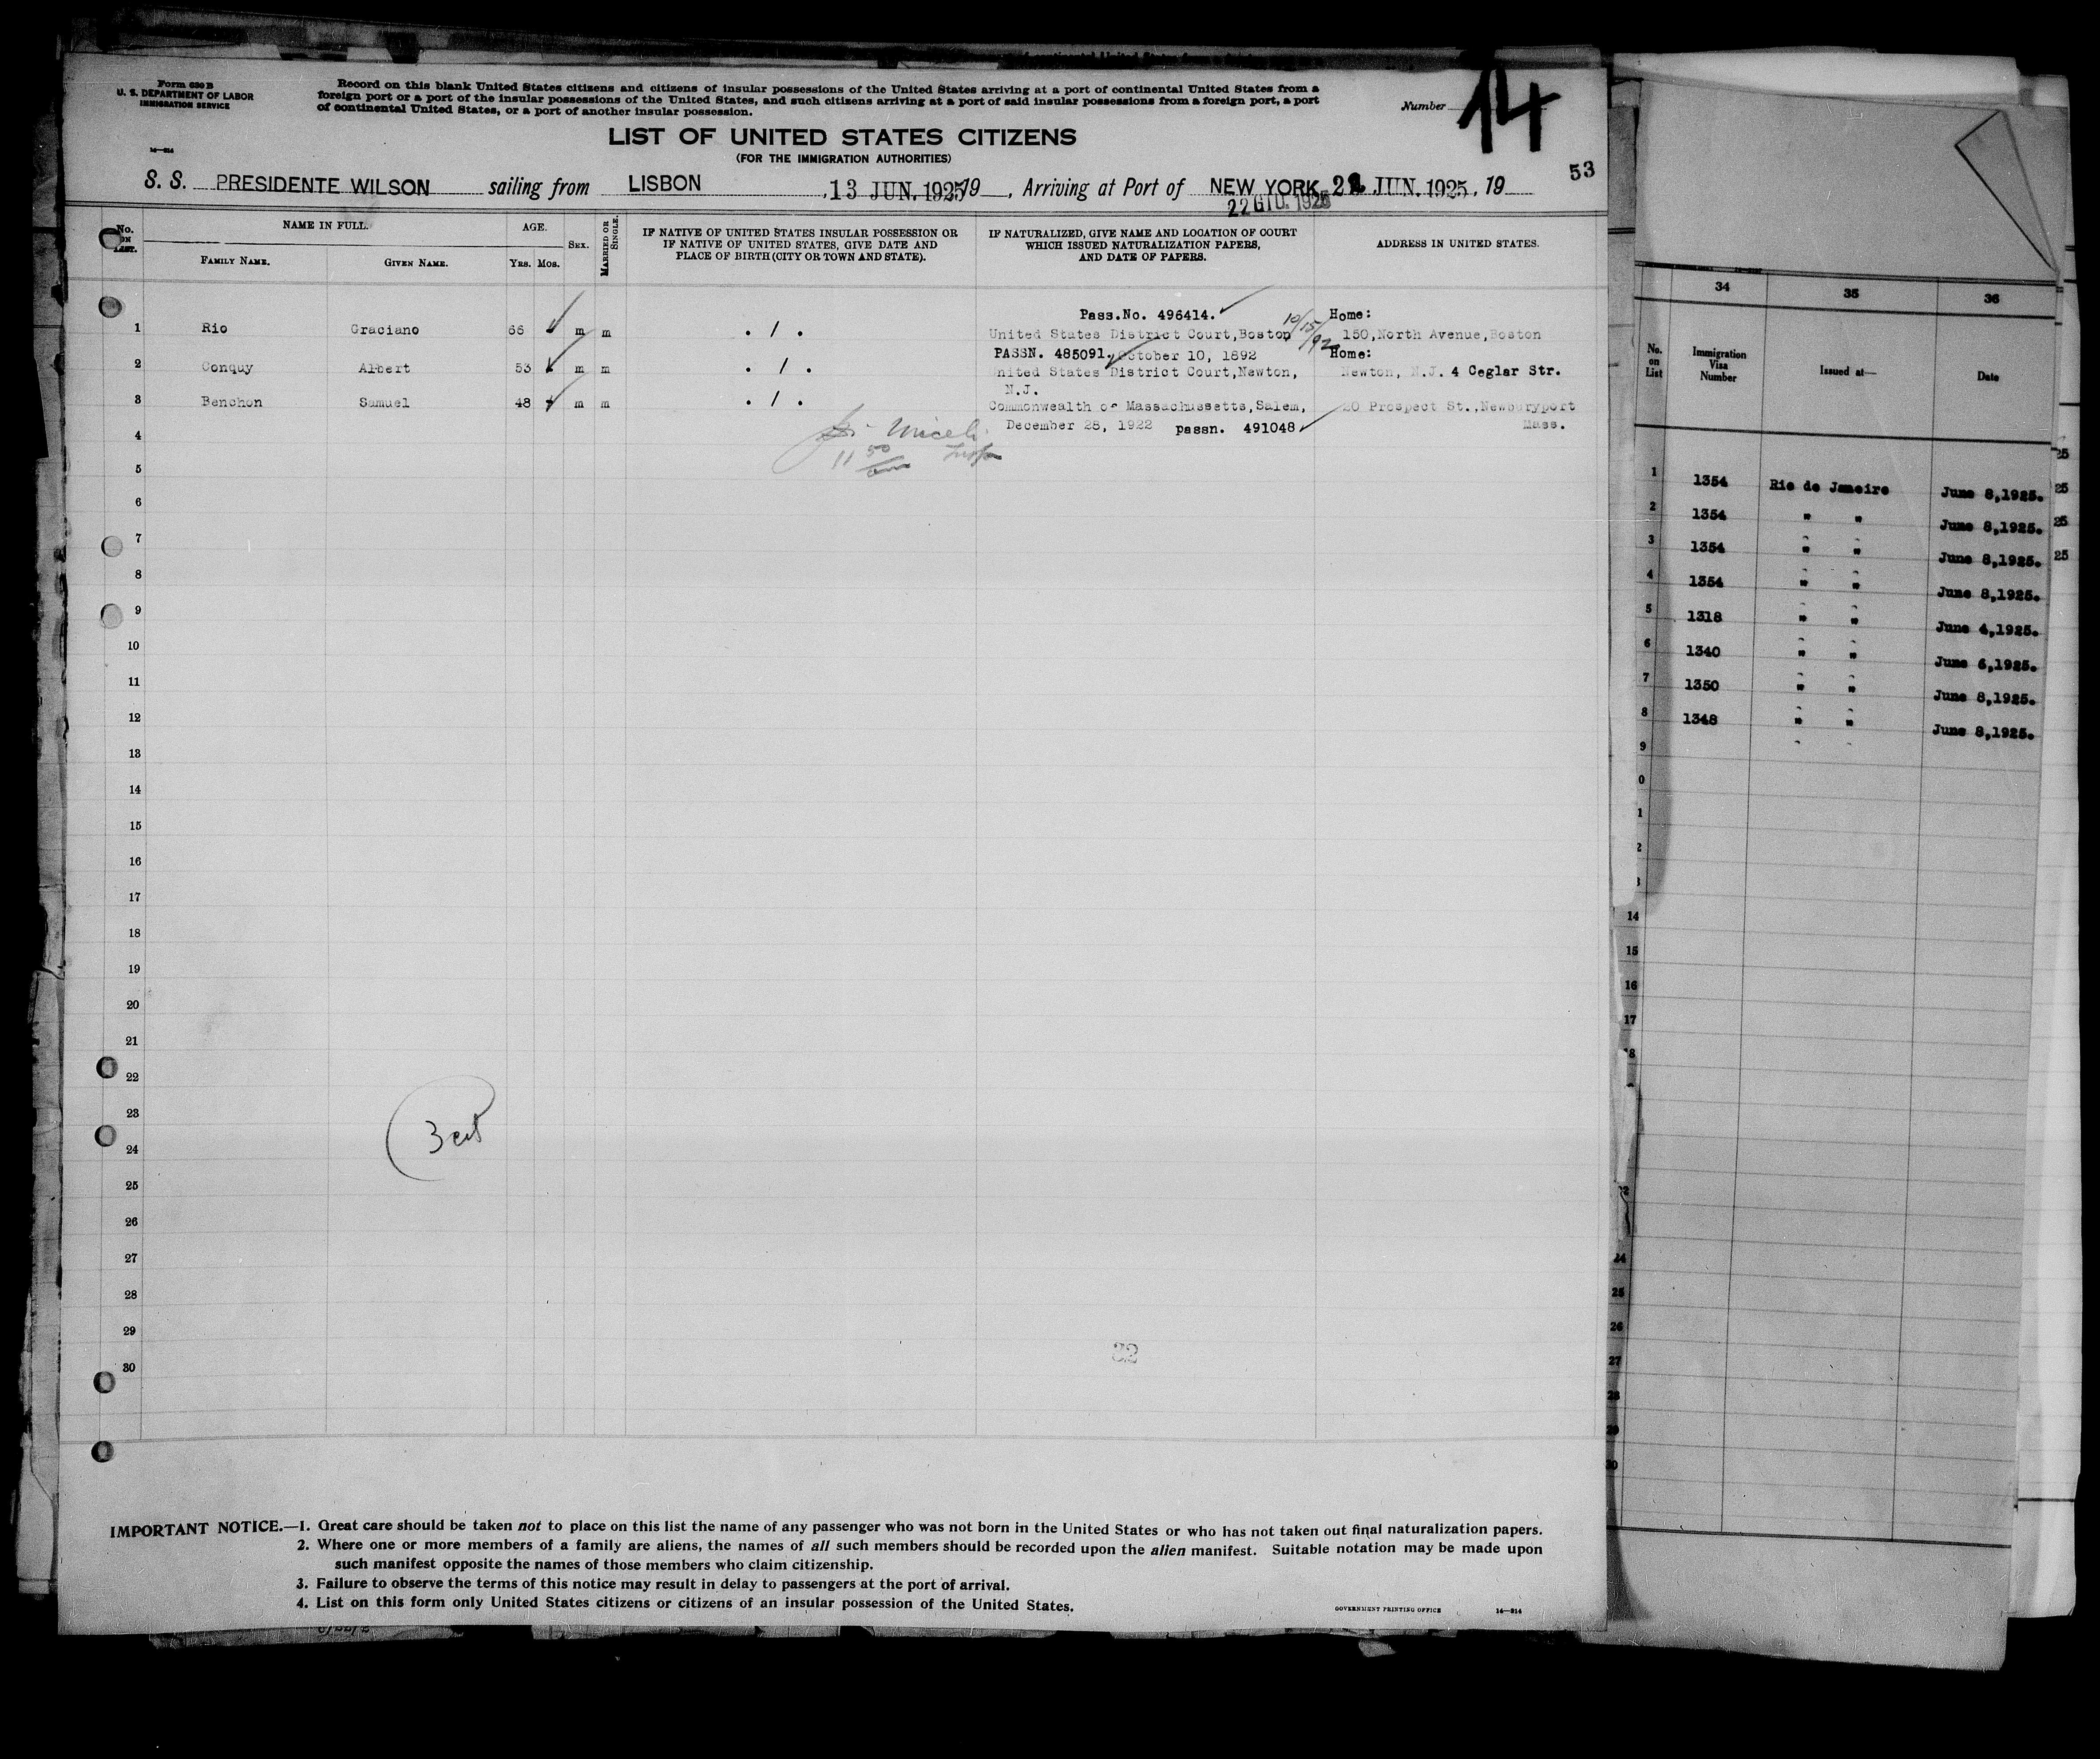 Form 630 B
U. S. DEPARTMENT OF LABOR
IMMIGRATION SERVICE
Record on this blank United States citizens and citizens of insular possessions of the United States arriving at a port of continental United States from a
foreign port or a port of the insular possessions of the United States, and such citizens arriving at a port of said insular possessions from a foreign port, a port
of continental United States, or a port of another insular possession.
Number 14
LIST OF UNITED STATES CITIZENS
(FOR THE IMMIGRATION AUTHORITIES)
14—814
53
S. S. PRESIDENTE WILSON sailing from LISBON , 13 JUN. 1925 19 , Arriving at Port of NEW YORK 22 JUN. 1925, 19
22 GIU. 1925
No. ON LIST.
NAME IN FULL.
FAMILY NAME. GIVEN NAME.
AGE.
YRS. MOS.
SEX.
MARRIED OR SINGLE.
IF NATIVE OF UNITED STATES INSULAR POSSESSION OR
IF NATIVE OF UNITED STATES, GIVE DATE AND
PLACE OF BIRTH (CITY OR TOWN AND STATE).
IF NATURALIZED, GIVE NAME AND LOCATION OF COURT
WHICH ISSUED NATURALIZATION PAPERS,
AND DATE OF PAPERS.
ADDRESS IN UNITED STATES.
Pass.No. 496414. Home:
1 Rio Graciano 66 m m . / . United States District Court,Boston 10/15/92 150,North Avenue,Boston
PASSN. 485091. October 10, 1892 Home:
2 Conquy Albert 53 m m . / . United States District Court,Newton, Newton, N.J. 4 Ceglar Str.
N.J.
3 Benchon Samuel 48 m m . / . Commonwealth of Massachussetts,Salem, 20 Prospect St.,Newburyport
December 28, 1922 passn. 491048 Mass.
4
Miceli
11 50 am Insp
5
6
7
8
9
10
11
12
13
14
15
16
17
18
19
20
21
22
23
3 cit
24
25
26
27
28
29
32
30
IMPORTANT NOTICE.—1. Great care should be taken not to place on this list the name of any passenger who was not born in the United States or who has not taken out final naturalization papers.
2. Where one or more members of a family are aliens, the names of all such members should be recorded upon the alien manifest. Suitable notation may be made upon
such manifest opposite the names of those members who claim citizenship.
3. Failure to observe the terms of this notice may result in delay to passengers at the port of arrival.
4. List on this form only United States citizens or citizens of an insular possession of the United States.
GOVERNMENT PRINTING OFFICE 14—814
34 35 36
No. on List
Immigration Visa Number
Issued at—
Date
1 1354 Rio de Janeiro June 8,1925.
2 1354 " " June 8,1925.
3 1354 " " June 8,1925.
4 1354 " " June 8,1925.
5 1318 " " June 4,1925.
6 1340 " " June 6,1925.
7 1350 " " June 8,1925.
8 1348 " " June 8,1925.
9
0
1
2
14
15
16
17
18
24
25
26
27
28
29
30
25
25
25
25